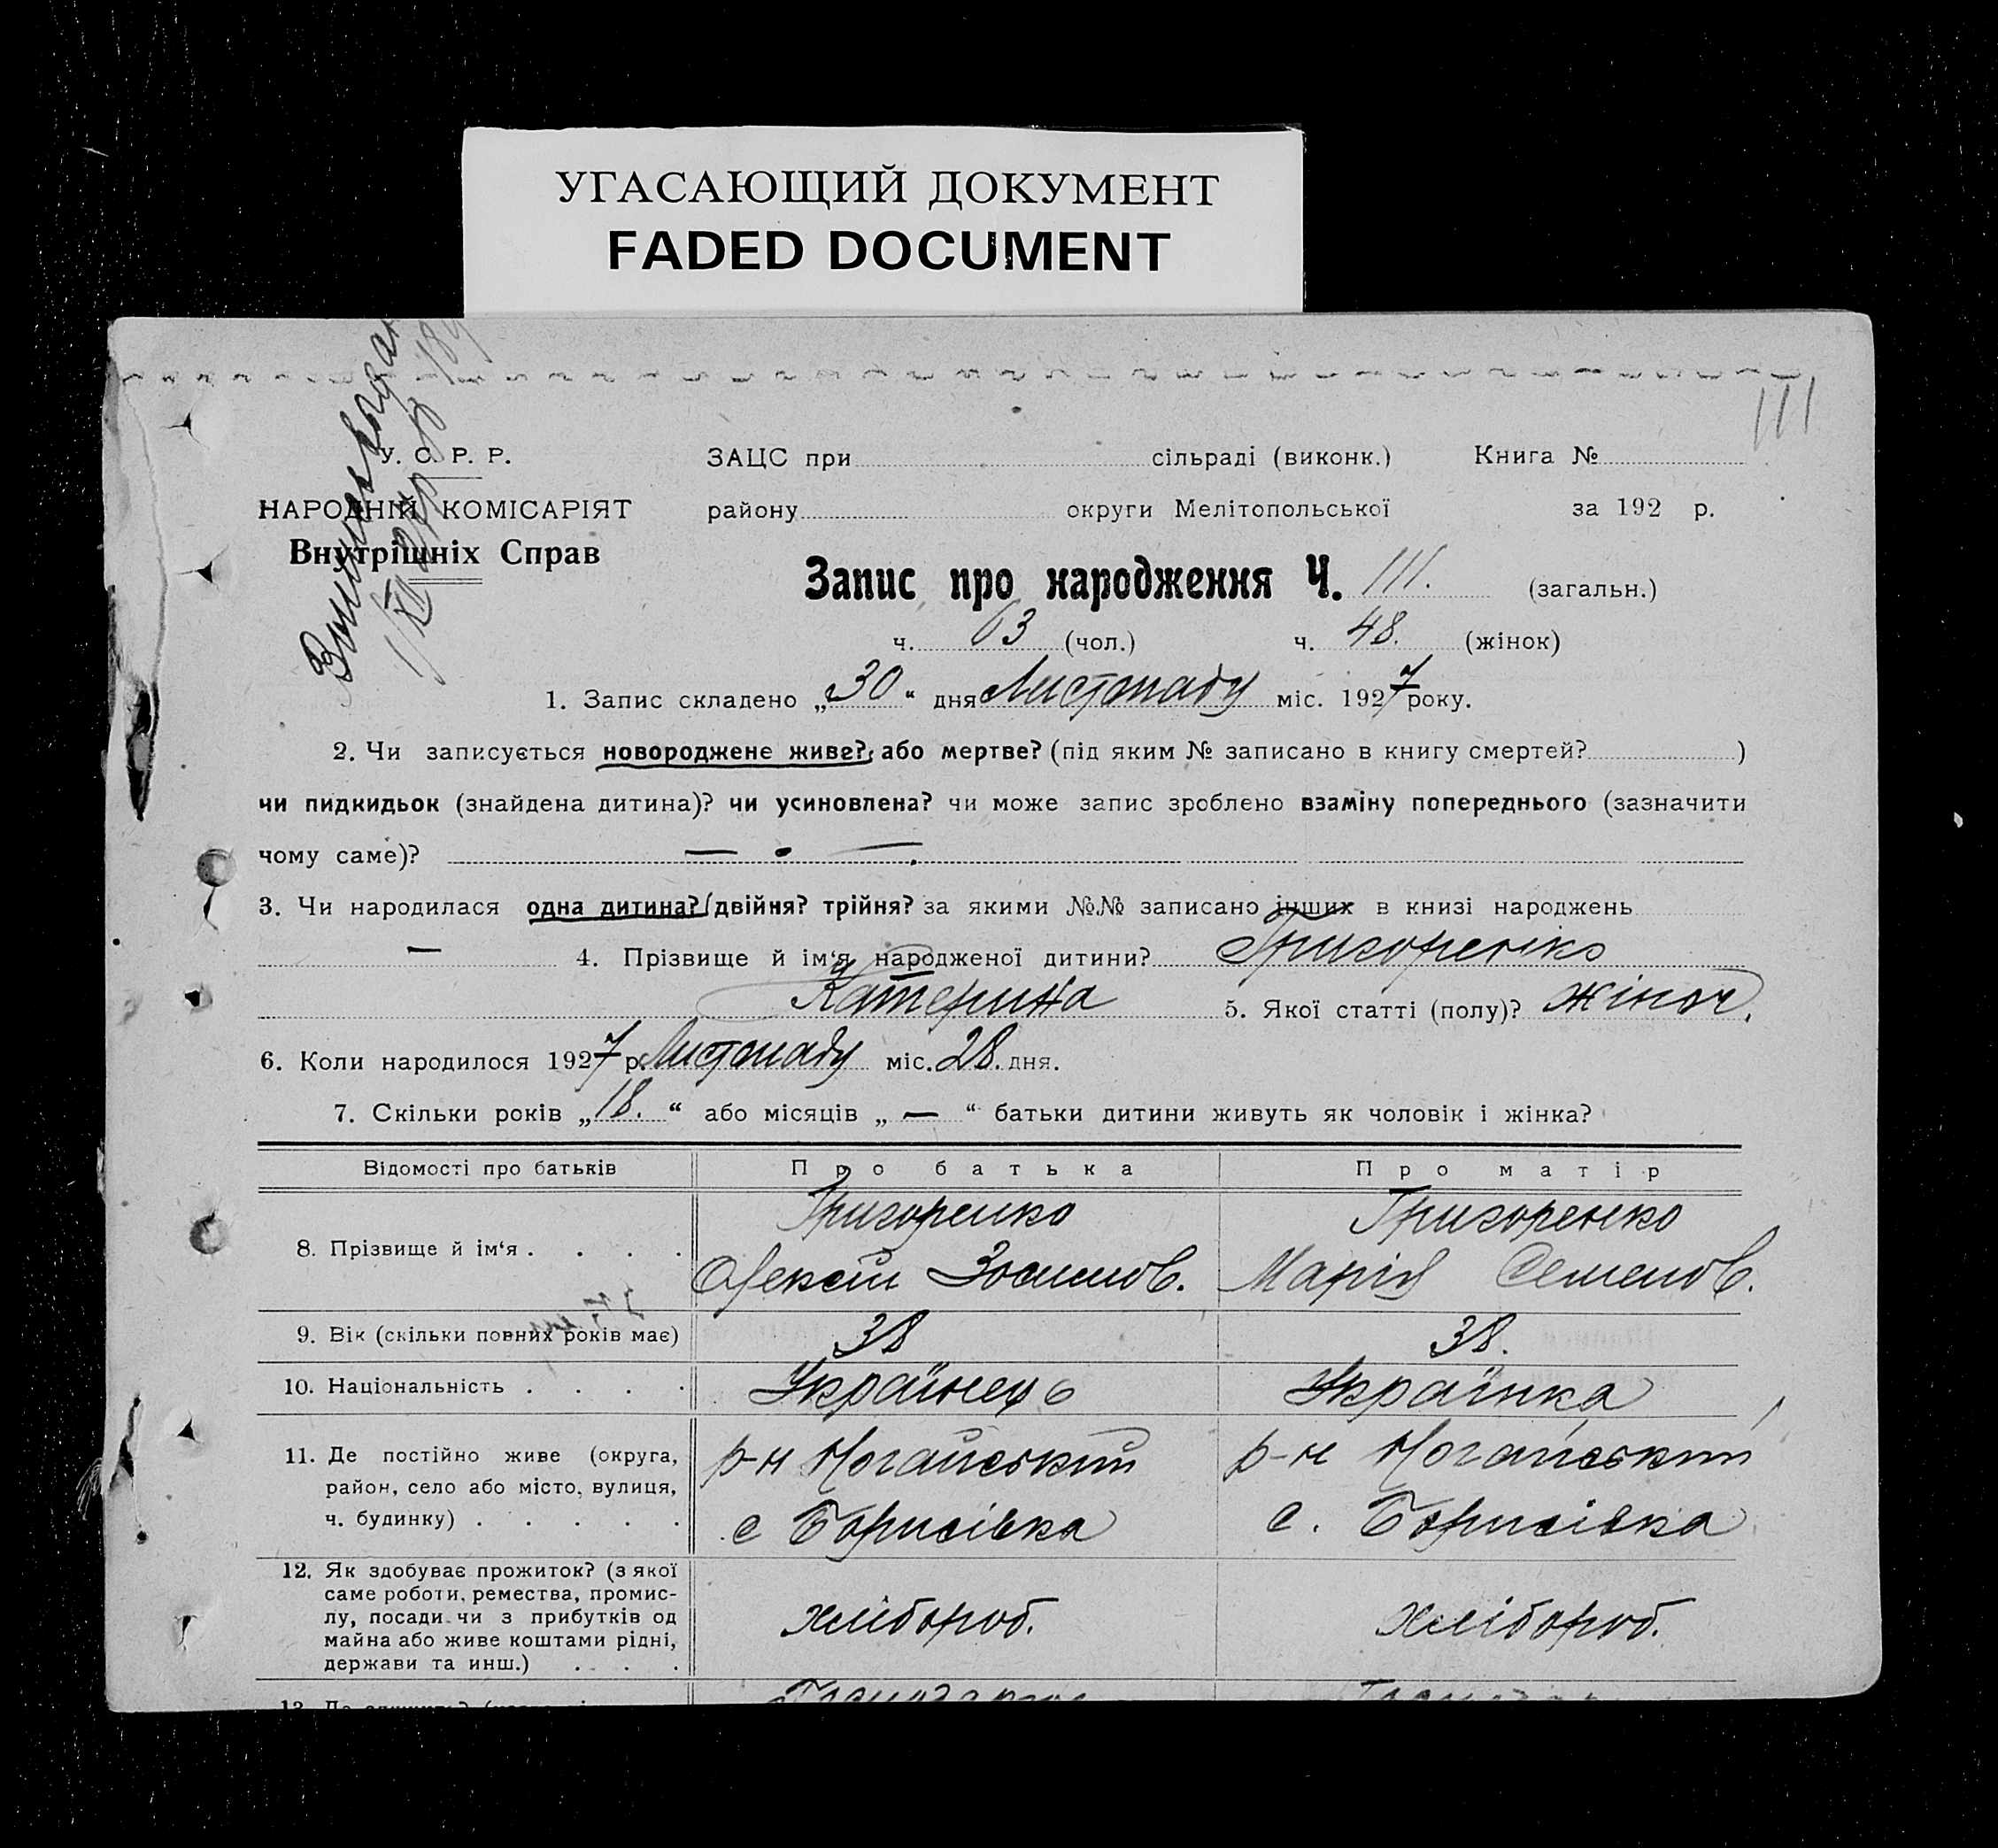 УГАСАЮЩИЙ ДОКУМЕНТ
FADED DOCUMENT
111
У. С. Р. Р.
НАРОДНІЙ КОМІСАРІЯТ
Внутрішніх Справ
ЗАЦС при сільраді (виконк.) Книга №
району округи Мелітопольської за 192 р.
Запис про народження Ч. 111. (загальн.)
ч. 63 (чол.) ч. 48. (жінок)
1. Запис складено „30“ дня Листопаду міс. 1927 року.
2. Чи записується новороджене живе? або мертве? (під яким № записано в книгу смертей? )
чи пидкидьок (знайдена дитина)? чи усиновлена? чи може запис зроблено взаміну попереднього (зазначити
чому саме)? —
3. Чи народилася одна дитина? двійня? трійня? за якими №№ записано інших в книзі народжень
— 4. Прізвище й ім‘я народженої дитини? Григоренко
Катерина 5. Якої статті (полу)? жіноч.
6. Коли народилося 1927 р. Листопаду міс. 28. дня.
7. Скільки років „18.“ або місяців „—“ батьки дитини живуть як чоловік і жінка?
Відомості про батьків Про батька Про матір
Григоренко Григоренко
8. Прізвище й ім‘я . . . .
Олексій Зосимов. Марія Семенов.
9. Вік (скільки повних років має) 38 38.
10. Національність . . . . Українець Українка
11. Де постійно живе (округа, р-н Ногайський р-н Ногайський
район, село або місто, вулиця,
ч. будинку) . . . . . с Борисівка с. Борисівка
12. Як здобуває прожиток? (з якої
саме роботи, ремества, промис-
лу, посади чи з прибутків од хлібороб. хлібороб.
майна або живе коштами рідні,
держави та инш.) . . .